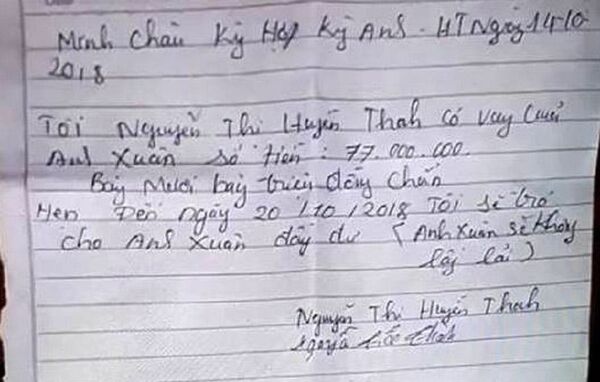 Minh Châu Kỳ Hợp Kỳ Anh - HT Ngày 14-10
2018
Tôi Nguyễn Thị Huyền Thanh có vay của
Anh Xuân số tiền : 77.000.000.
Bảy Mươi bảy triệu đồng Chẵn
Hẹn Đến ngày 20/10/2018 Tôi sẽ trả
cho Anh Xuân đầy đủ ( Anh Xuân sẽ không
lấy lãi )
Nguyễn Thị Huyền Thanh
Nguyễn Thanh